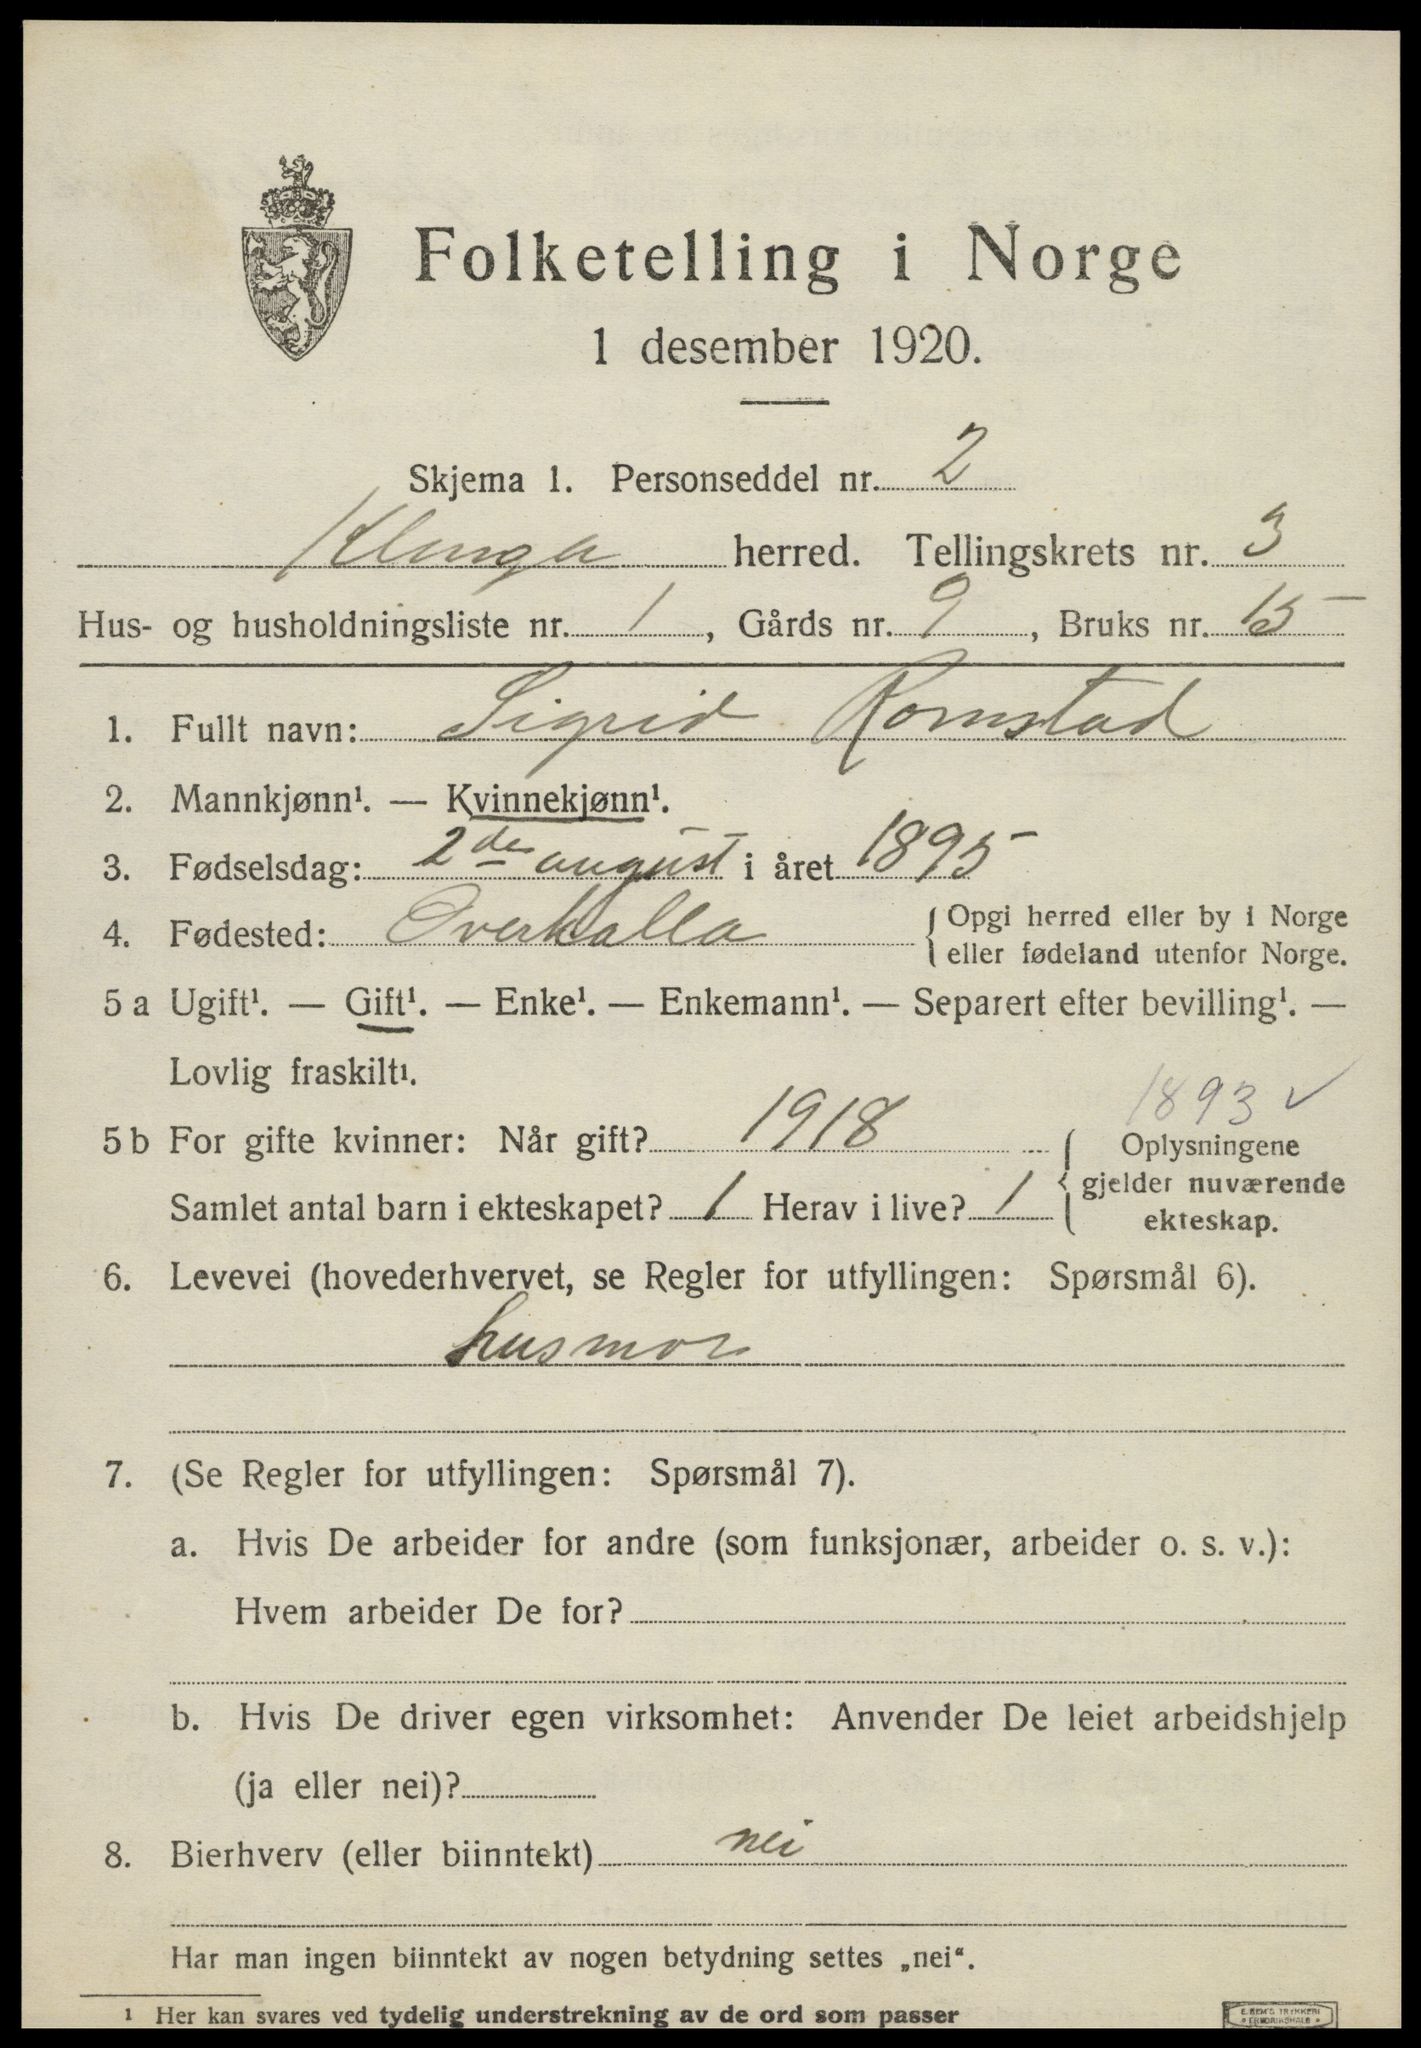 Folketelling i Norge
1 desember 1920.
Skjema 1. Personseddel nr. 2
Klinga herred. Tellingskrets nr. 3
Hus- og husholdningsliste nr. 1, Gårds nr. 9, Bruks nr. 15
1. Fullt navn: Sigrid Romstad
2. Mannkjønn¹. — Kvinnekjønn¹.
3. Fødselsdag: 2de august i året 1895
4. Fødested: Overhalla { Opgi herred eller by i Norge
eller fødeland utenfor Norge.
5 a Ugift¹. — Gift¹. — Enke¹. — Enkemann¹. — Separert efter bevilling¹. —
Lovlig fraskilt¹.
1893 ✓
5 b For gifte kvinner: Når gift? 1918 { Oplysningene
gjelder nuværende
Samlet antal barn i ekteskapet? 1 Herav i live? 1
ekteskap.
6. Levevei (hovederhvervet, se Regler for utfyllingen: Spørsmål 6).
husmor
7. (Se Regler for utfyllingen: Spørsmål 7).
a. Hvis De arbeider for andre (som funksjonær, arbeider o. s. v.):
Hvem arbeider De for?
b. Hvis De driver egen virksomhet: Anvender De leiet arbeidshjelp
(ja eller nei)?
8. Bierhverv (eller biinntekt) nei
Har man ingen biinntekt av nogen betydning settes „nei“.
¹ Her kan svares ved tydelig understrekning av de ord som passer
E. SEM'S TRYKKERI
FREDRIKSHALD